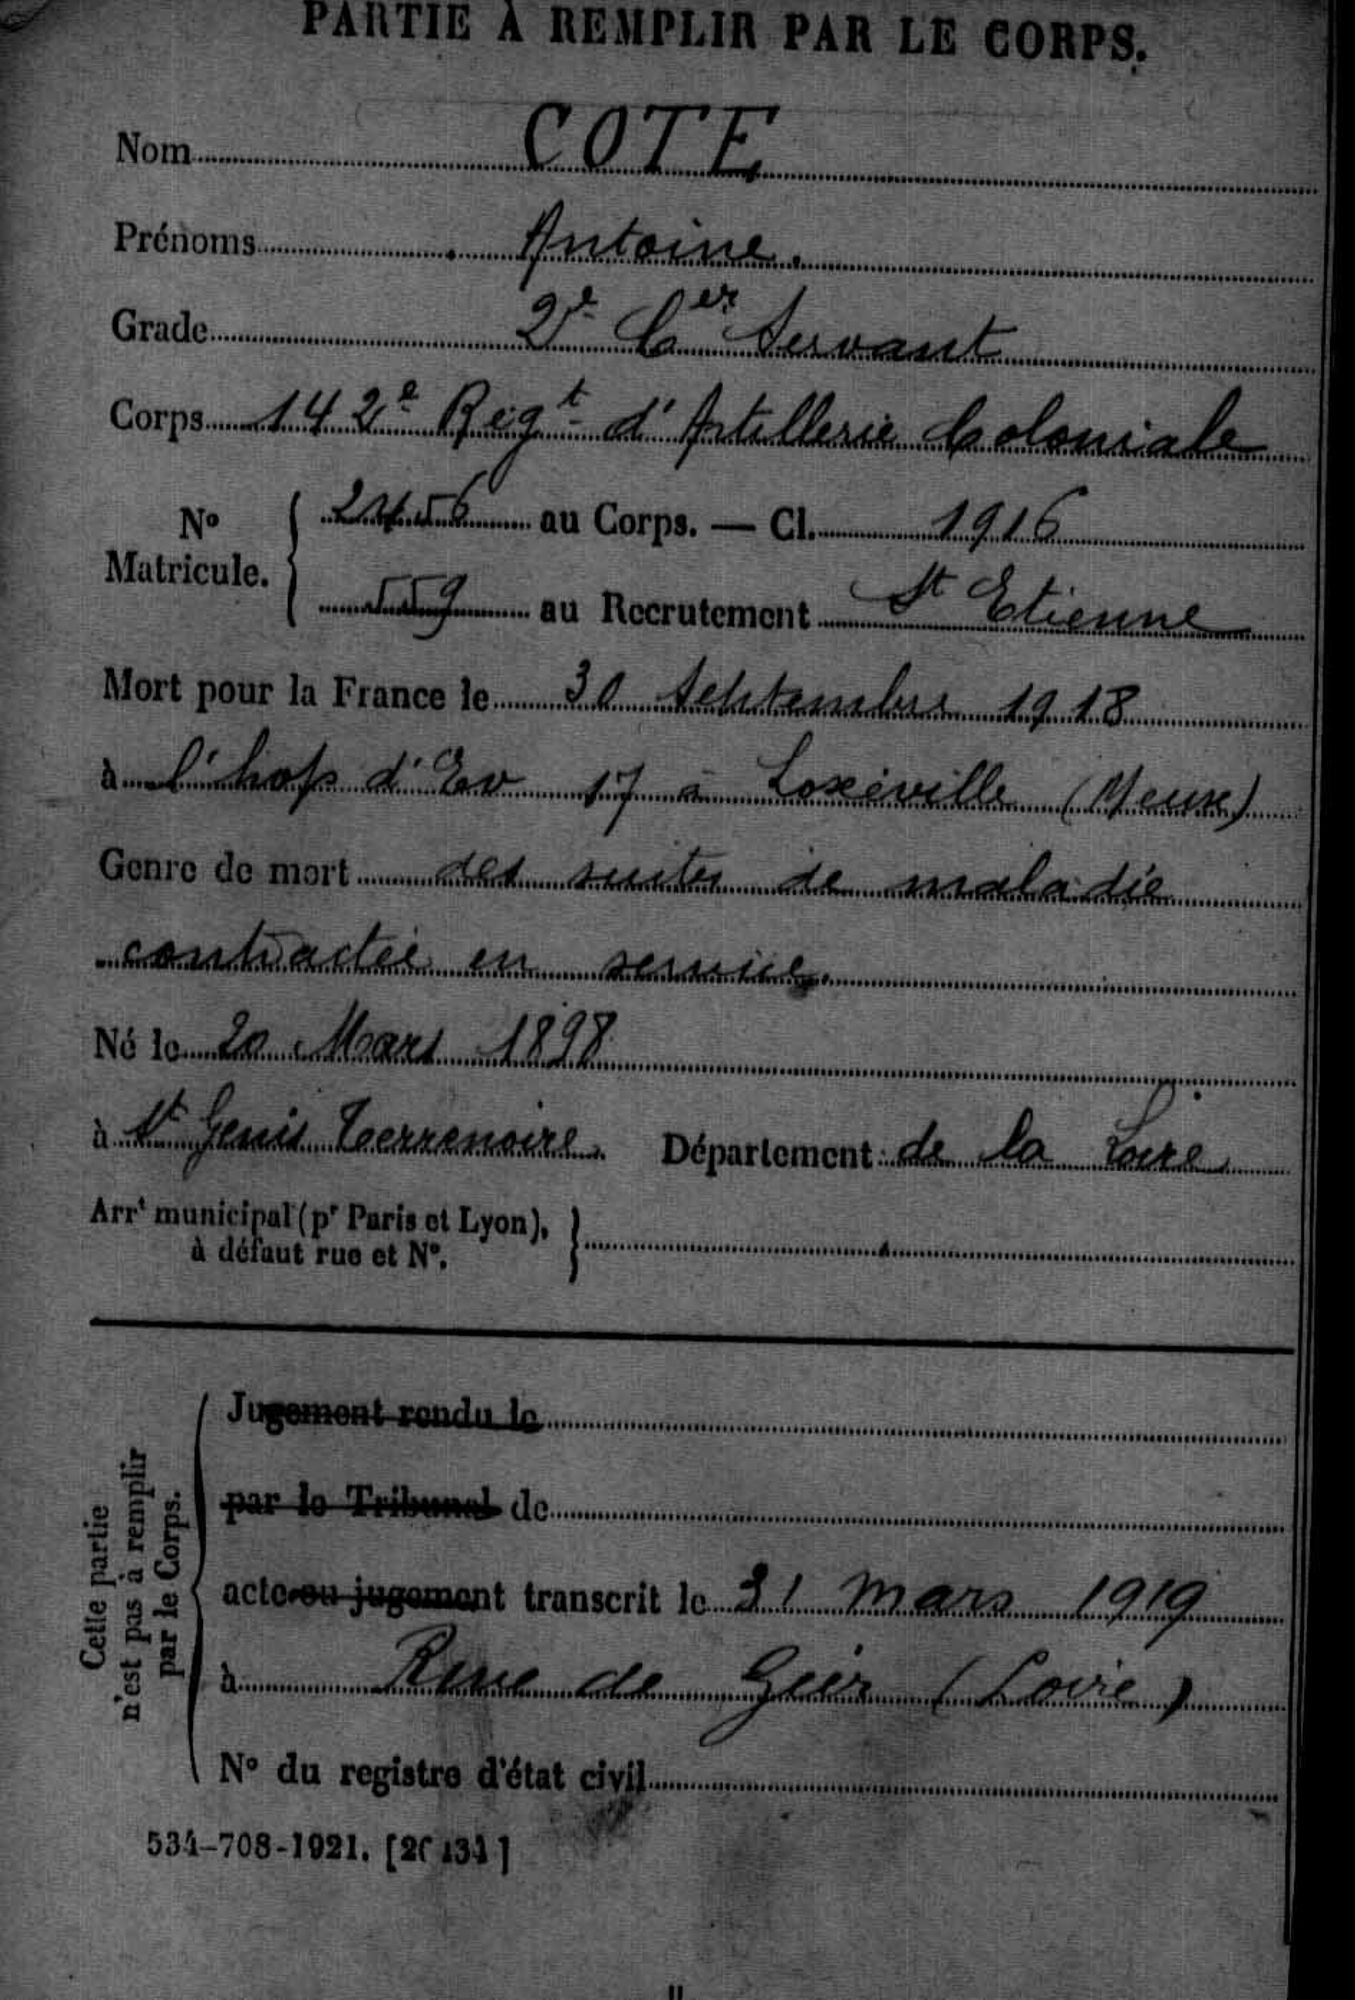 PARTIE À REMPLIR PAR LE CORPS.
Nom COTE
Prénoms Antoine.
Grade 2e Cer Servant
Corps 142e Regt d'Artillerie Coloniale
No Matricule. 2456 au Corps. — Cl. 1916
559 au Recrutement St Etienne
Mort pour la France le 30 Septembre 1918
à l'hop d'Ev 17 à Loxéville (Meuse)
Genre de mort des suites de maladie
contractée en service.
Né le 20 Mars 1898
à St Genis Terrenoire. Département de la Loire
Arrt municipal (pr Paris et Lyon),
à défaut rue et No.
Cette partie
n'est pas à remplir
par le Corps.
Jugement rendu le
par le Tribunal de
acte ou jugement transcrit le 31 mars 1919
à Rive de Gier (Loire)
No du registre d'état civil
534-708-1921.